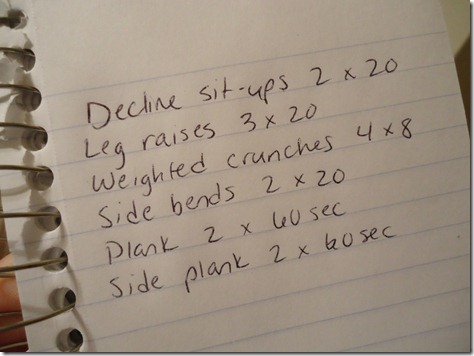 Decline sit-ups 2 x 20
Leg raises 3 x 20
Weighted crunches 4 x 8
Side bends 2 x 20
Plank 2 x 60 sec
Side plank 2 x 60 sec